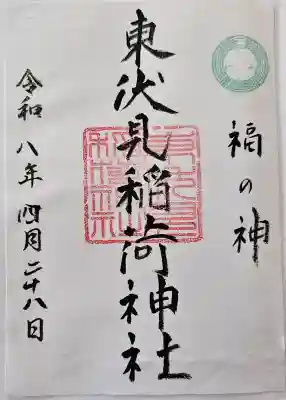 福の神
東伏見稲荷神社
令和八年四月二十八日